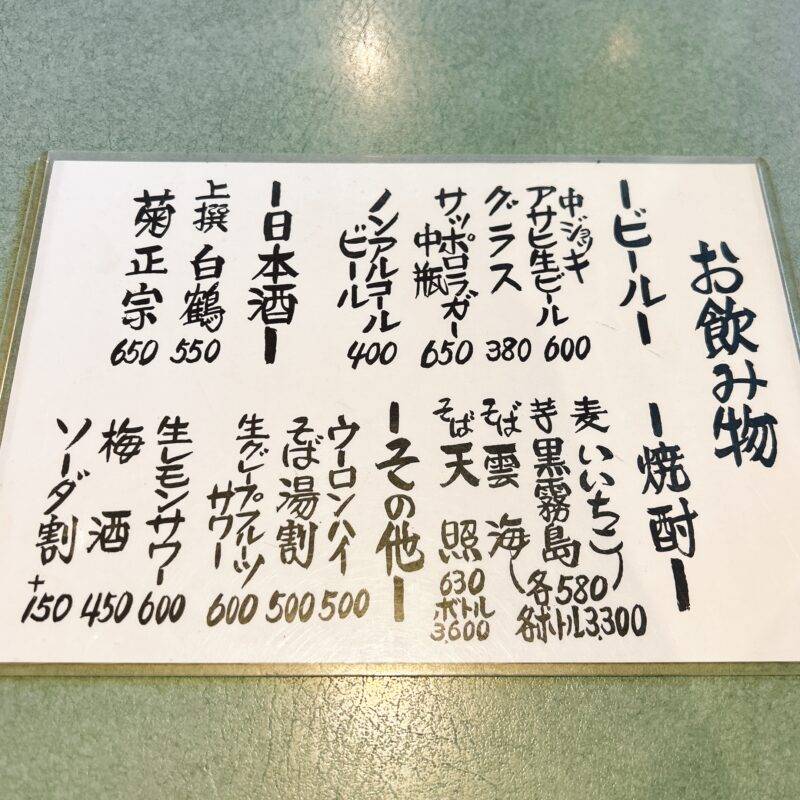 お飲み物
ービールー
中ジョッキ
アサヒ生ビール 600
グラス 380
サッポロラガー
中瓶 650
ノンアルコール
ビール 400
ー日本酒ー
上撰 白鶴 550
菊正宗 650
ー焼酎ー
麦 いいちこ
芋 黒霧島
そば 雲海
各580
各ボトル3,300
そば 天照
630
ボトル
3,600
ーその他ー
ウーロンハイ 500
そば湯割 500
生グレープフルーツ
サワー 600
生レモンサワー 600
梅酒 450
ソーダ割 +150